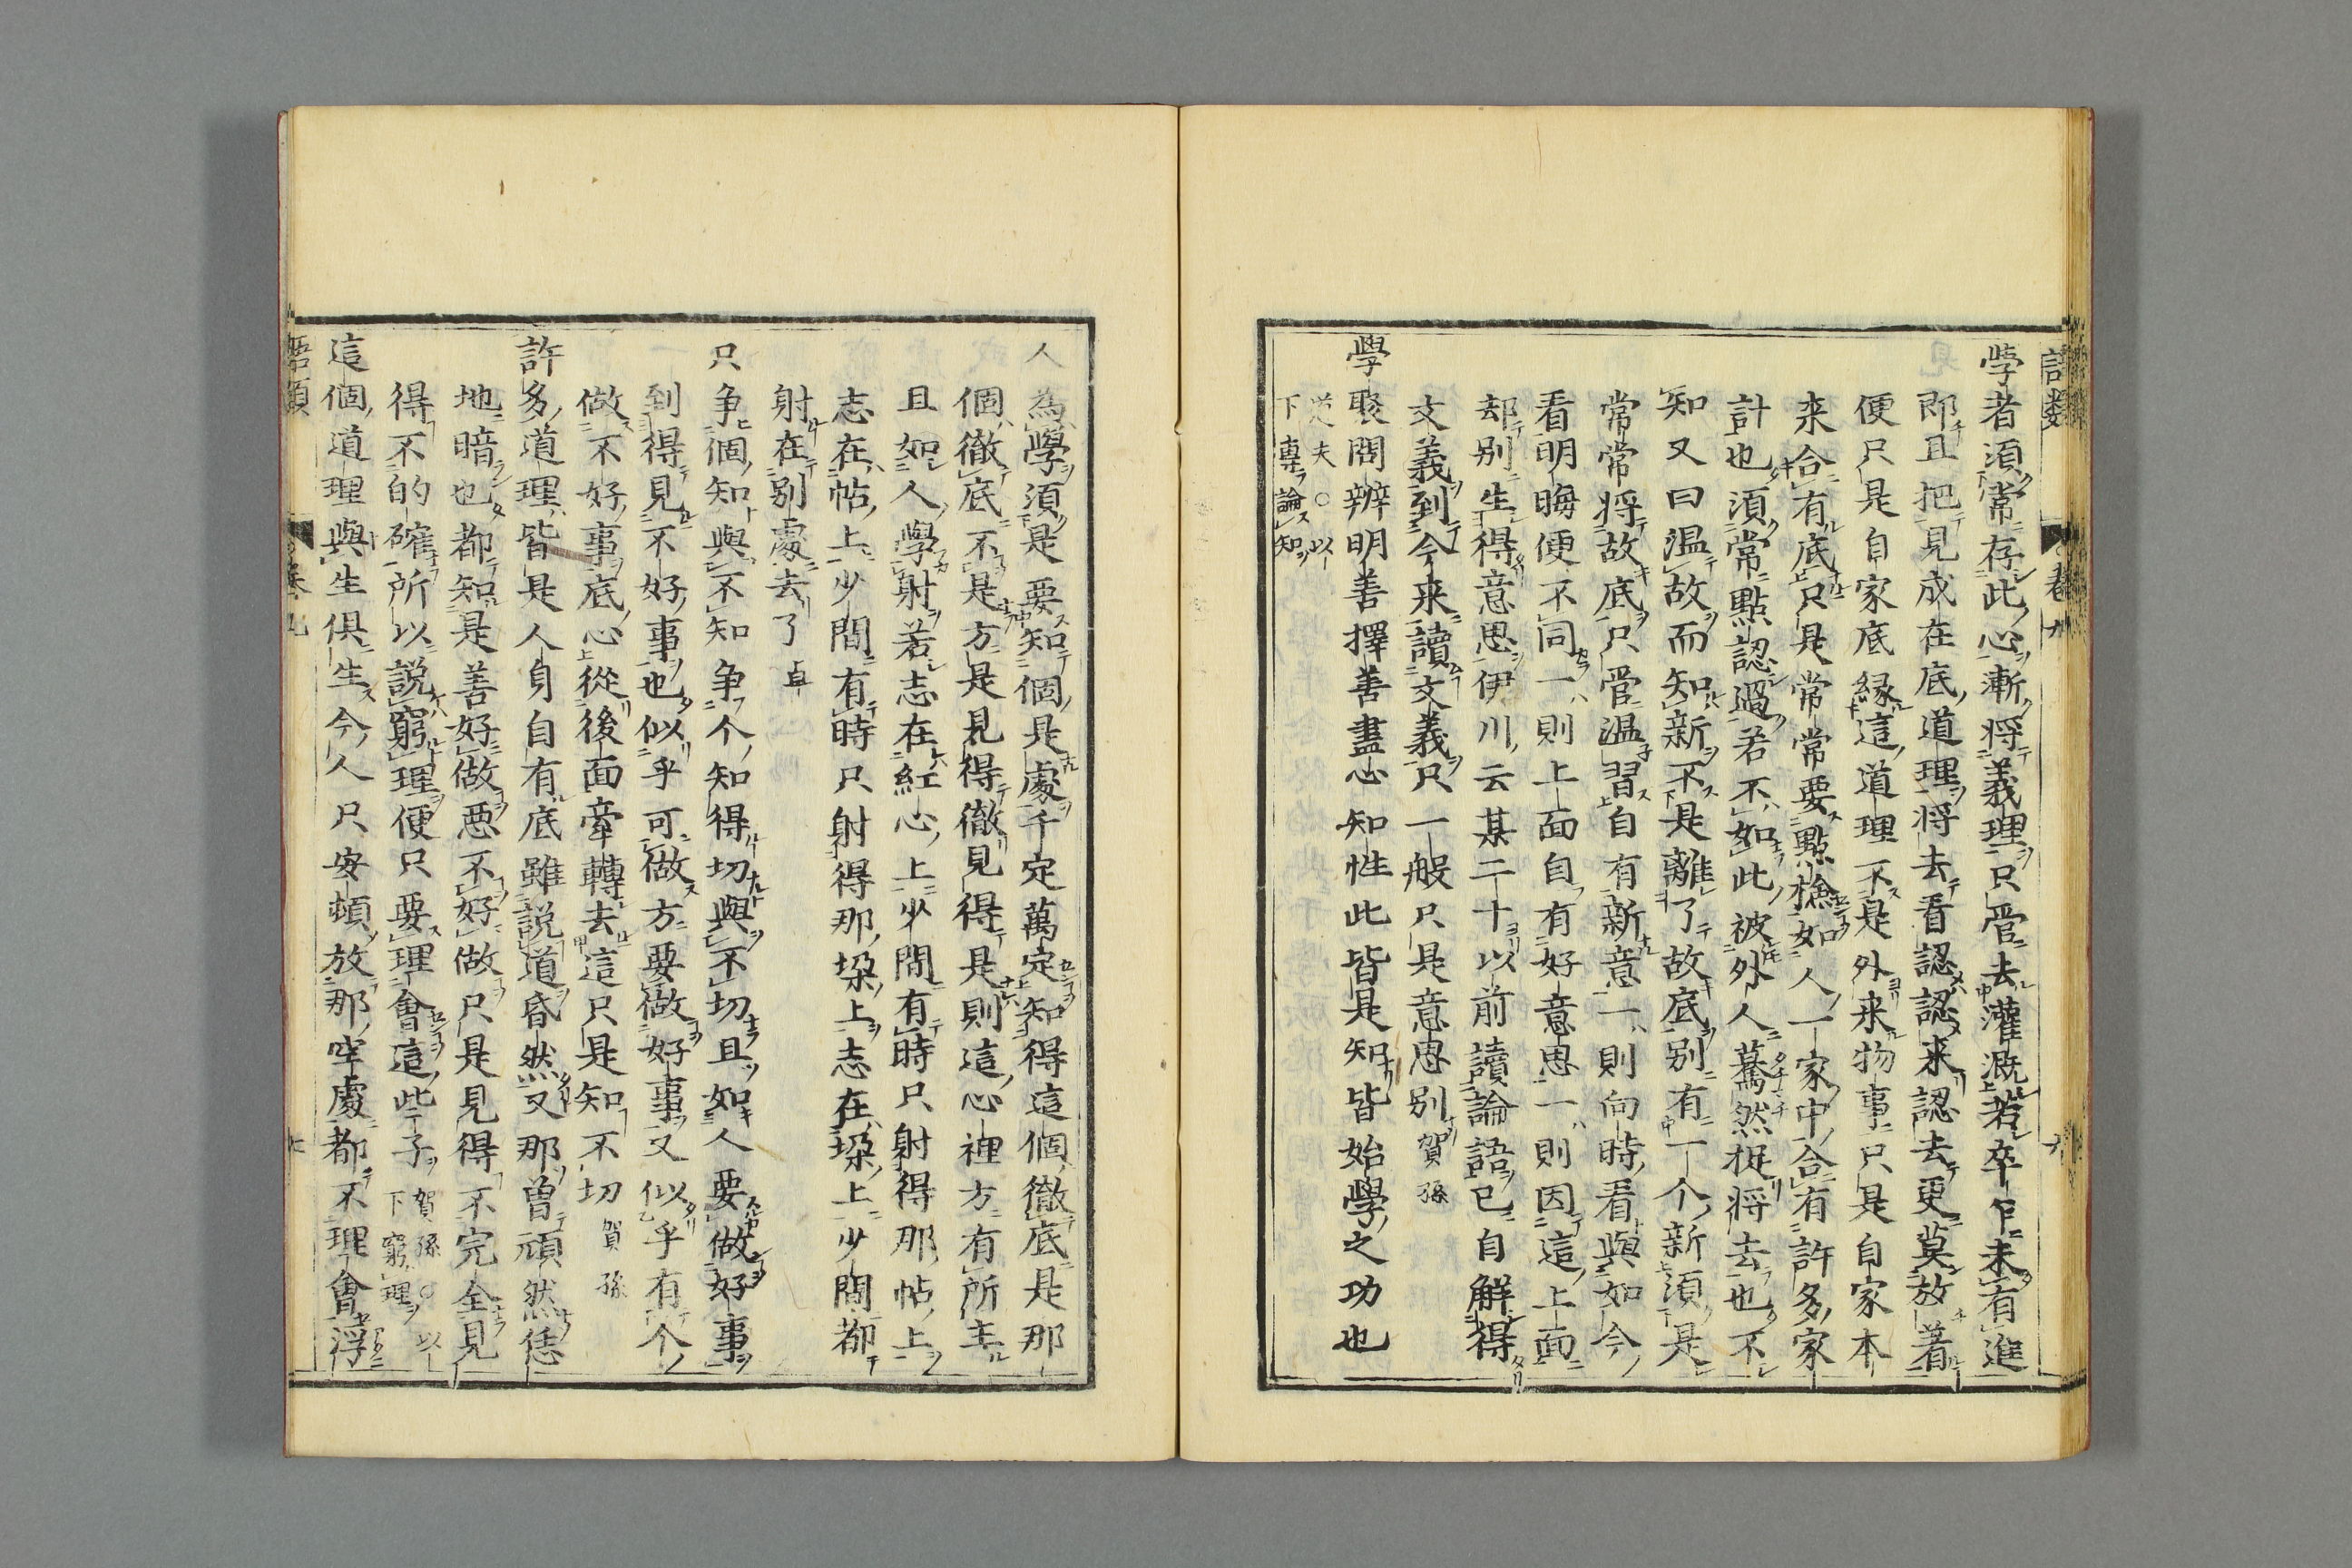 語類 卷九 九
學者須常存此心漸將義理只管去灌溉若卒乍未有進
即且把見成在底道理將去看認認來認去更莫放着
便只是自家底緣這道理不是外来物事只是自家本
来合有底只是常常要點檢如人一家中合有許多家
計也須常點認過若不如此被外人驀然捉將去也不
知又曰温故而知新不是離了故底别有一个新須是
常常將故底只管温習自有新意一則向時看與如今
看明晦便不同一則上面自有好意思一則因這上面
却别生得意思伊川云某二十以前讀論語已自解得
文義到今来讀文義只一般只是意思别賀孫
學聚問辨明善擇善盡心知性此皆是知皆始學之功也
道夫○以
下專論知
人為學須是要知個是處千定萬定知得這個徹底是那
個徹底不是方是見得徹見得是則這心裡方有所主
且如人學射若志在紅心上少間有時只射得那帖上
志在帖上少間有時只射得那垛上志在垛上少間都
射在别處去了卓
只争個知與不知争个知得切與不切且如人要做好事
到得見不好事也似乎可做方要做好事又似乎有个
做不好事底心從後面牽轉去這只是知不切賀孫
許多道理皆是人身自有底雖説道昏然又那曾頑然恁
地暗也都知是善好做悪不好做只是見得不完全見
得不的確所以説窮理便只要理會這些子賀孫○以
下窮理
這個道理與生俱生今人只安頓放那空處都不理會浮
語類 卷九